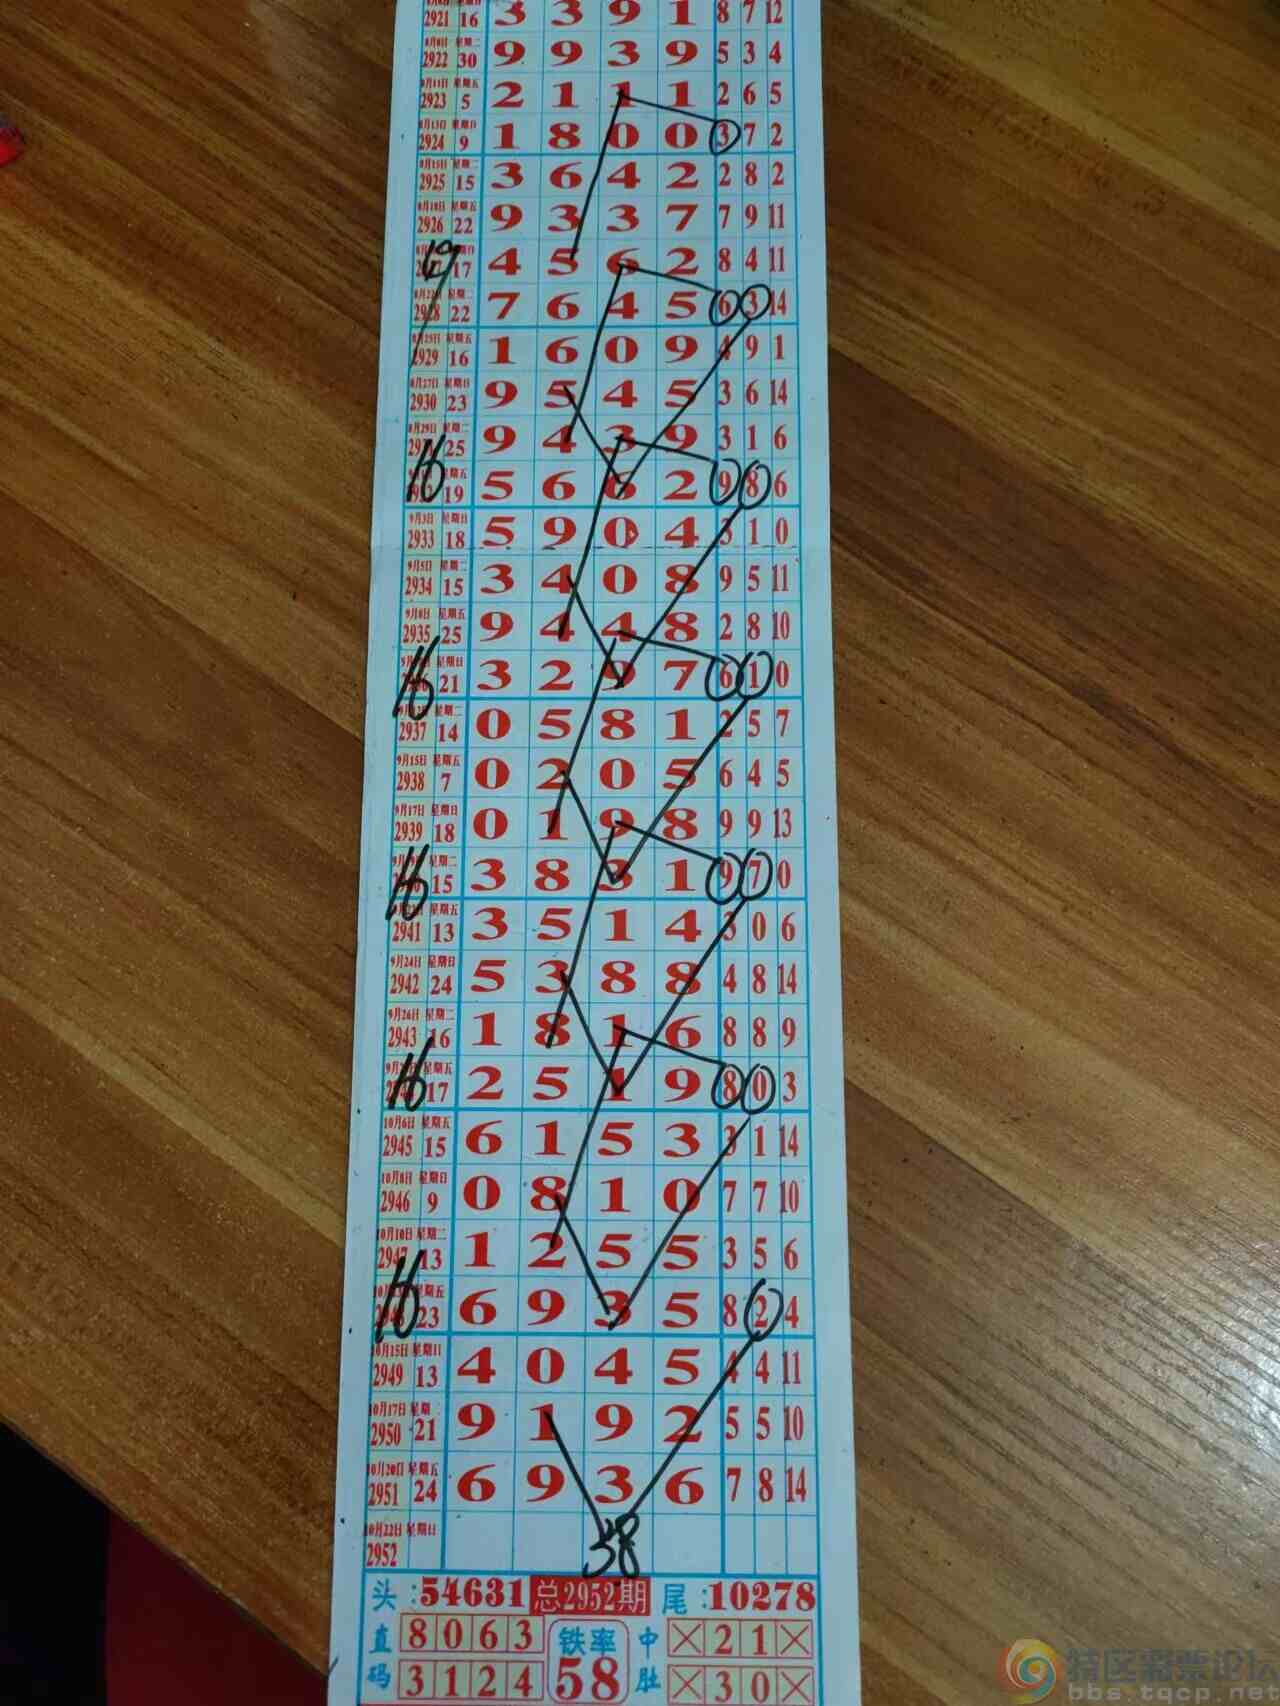 2921 16 3 3 9 1 8 7 12
8月8日 星期二 2922 30 9 9 3 9 5 3 4
8月11日 星期五 2923 5 2 1 1 1 2 6 5
8月13日 星期日 2924 9 1 8 0 0 3 7 2
8月15日 星期二 2925 15 3 6 4 2 2 8 2
8月18日 星期五 2926 22 9 3 3 7 7 9 11
17 4 5 6 2 8 4 11
8月22日 星期二 2928 22 7 6 4 5 6 3 14
8月25日 星期五 2929 16 1 6 0 9 4 9 1
8月27日 星期日 2930 23 9 5 4 5 3 6 14
8月29日 星期二 25 9 4 3 9 3 1 6
16 星期五 19 5 6 6 2 9 8 6
9月3日 星期日 2933 18 5 9 0 4 3 1 0
9月5日 星期二 2934 15 3 4 0 8 9 5 11
9月8日 星期五 2935 25 9 4 4 8 2 8 10
16 星期日 21 3 2 9 7 6 1 0
9月12日 星期二 2937 14 0 5 8 1 2 5 7
9月15日 星期五 2938 7 0 2 0 5 6 4 5
9月17日 星期日 2939 18 0 1 9 8 9 9 13
16 星期二 15 3 8 3 1 9 7 0
星期五 2941 13 3 5 1 4 3 0 6
9月24日 星期日 2942 24 5 3 8 8 4 8 14
9月26日 星期二 2943 16 1 8 1 6 8 8 9
16 星期五 17 2 5 1 9 8 0 3
10月6日 星期五 2945 15 6 1 5 3 3 1 14
10月8日 星期日 2946 9 0 8 1 0 7 7 10
10月10日 星期二 2947 13 1 2 5 5 3 5 6
16 星期五 23 6 9 3 5 8 2 4
10月15日 星期日 2949 13 4 0 4 5 4 4 11
10月17日 星期 2950 21 9 1 9 2 5 5 10
10月20日 星期五 2951 24 6 9 3 6 7 8 14
10月22日 星期日 2952 38
头:54631 总2952期 尾:10278
直码 8 0 6 3 铁率 中肚 2 1
3 1 2 4 58 3 0
特区彩票论坛
bbs.tqcp.net